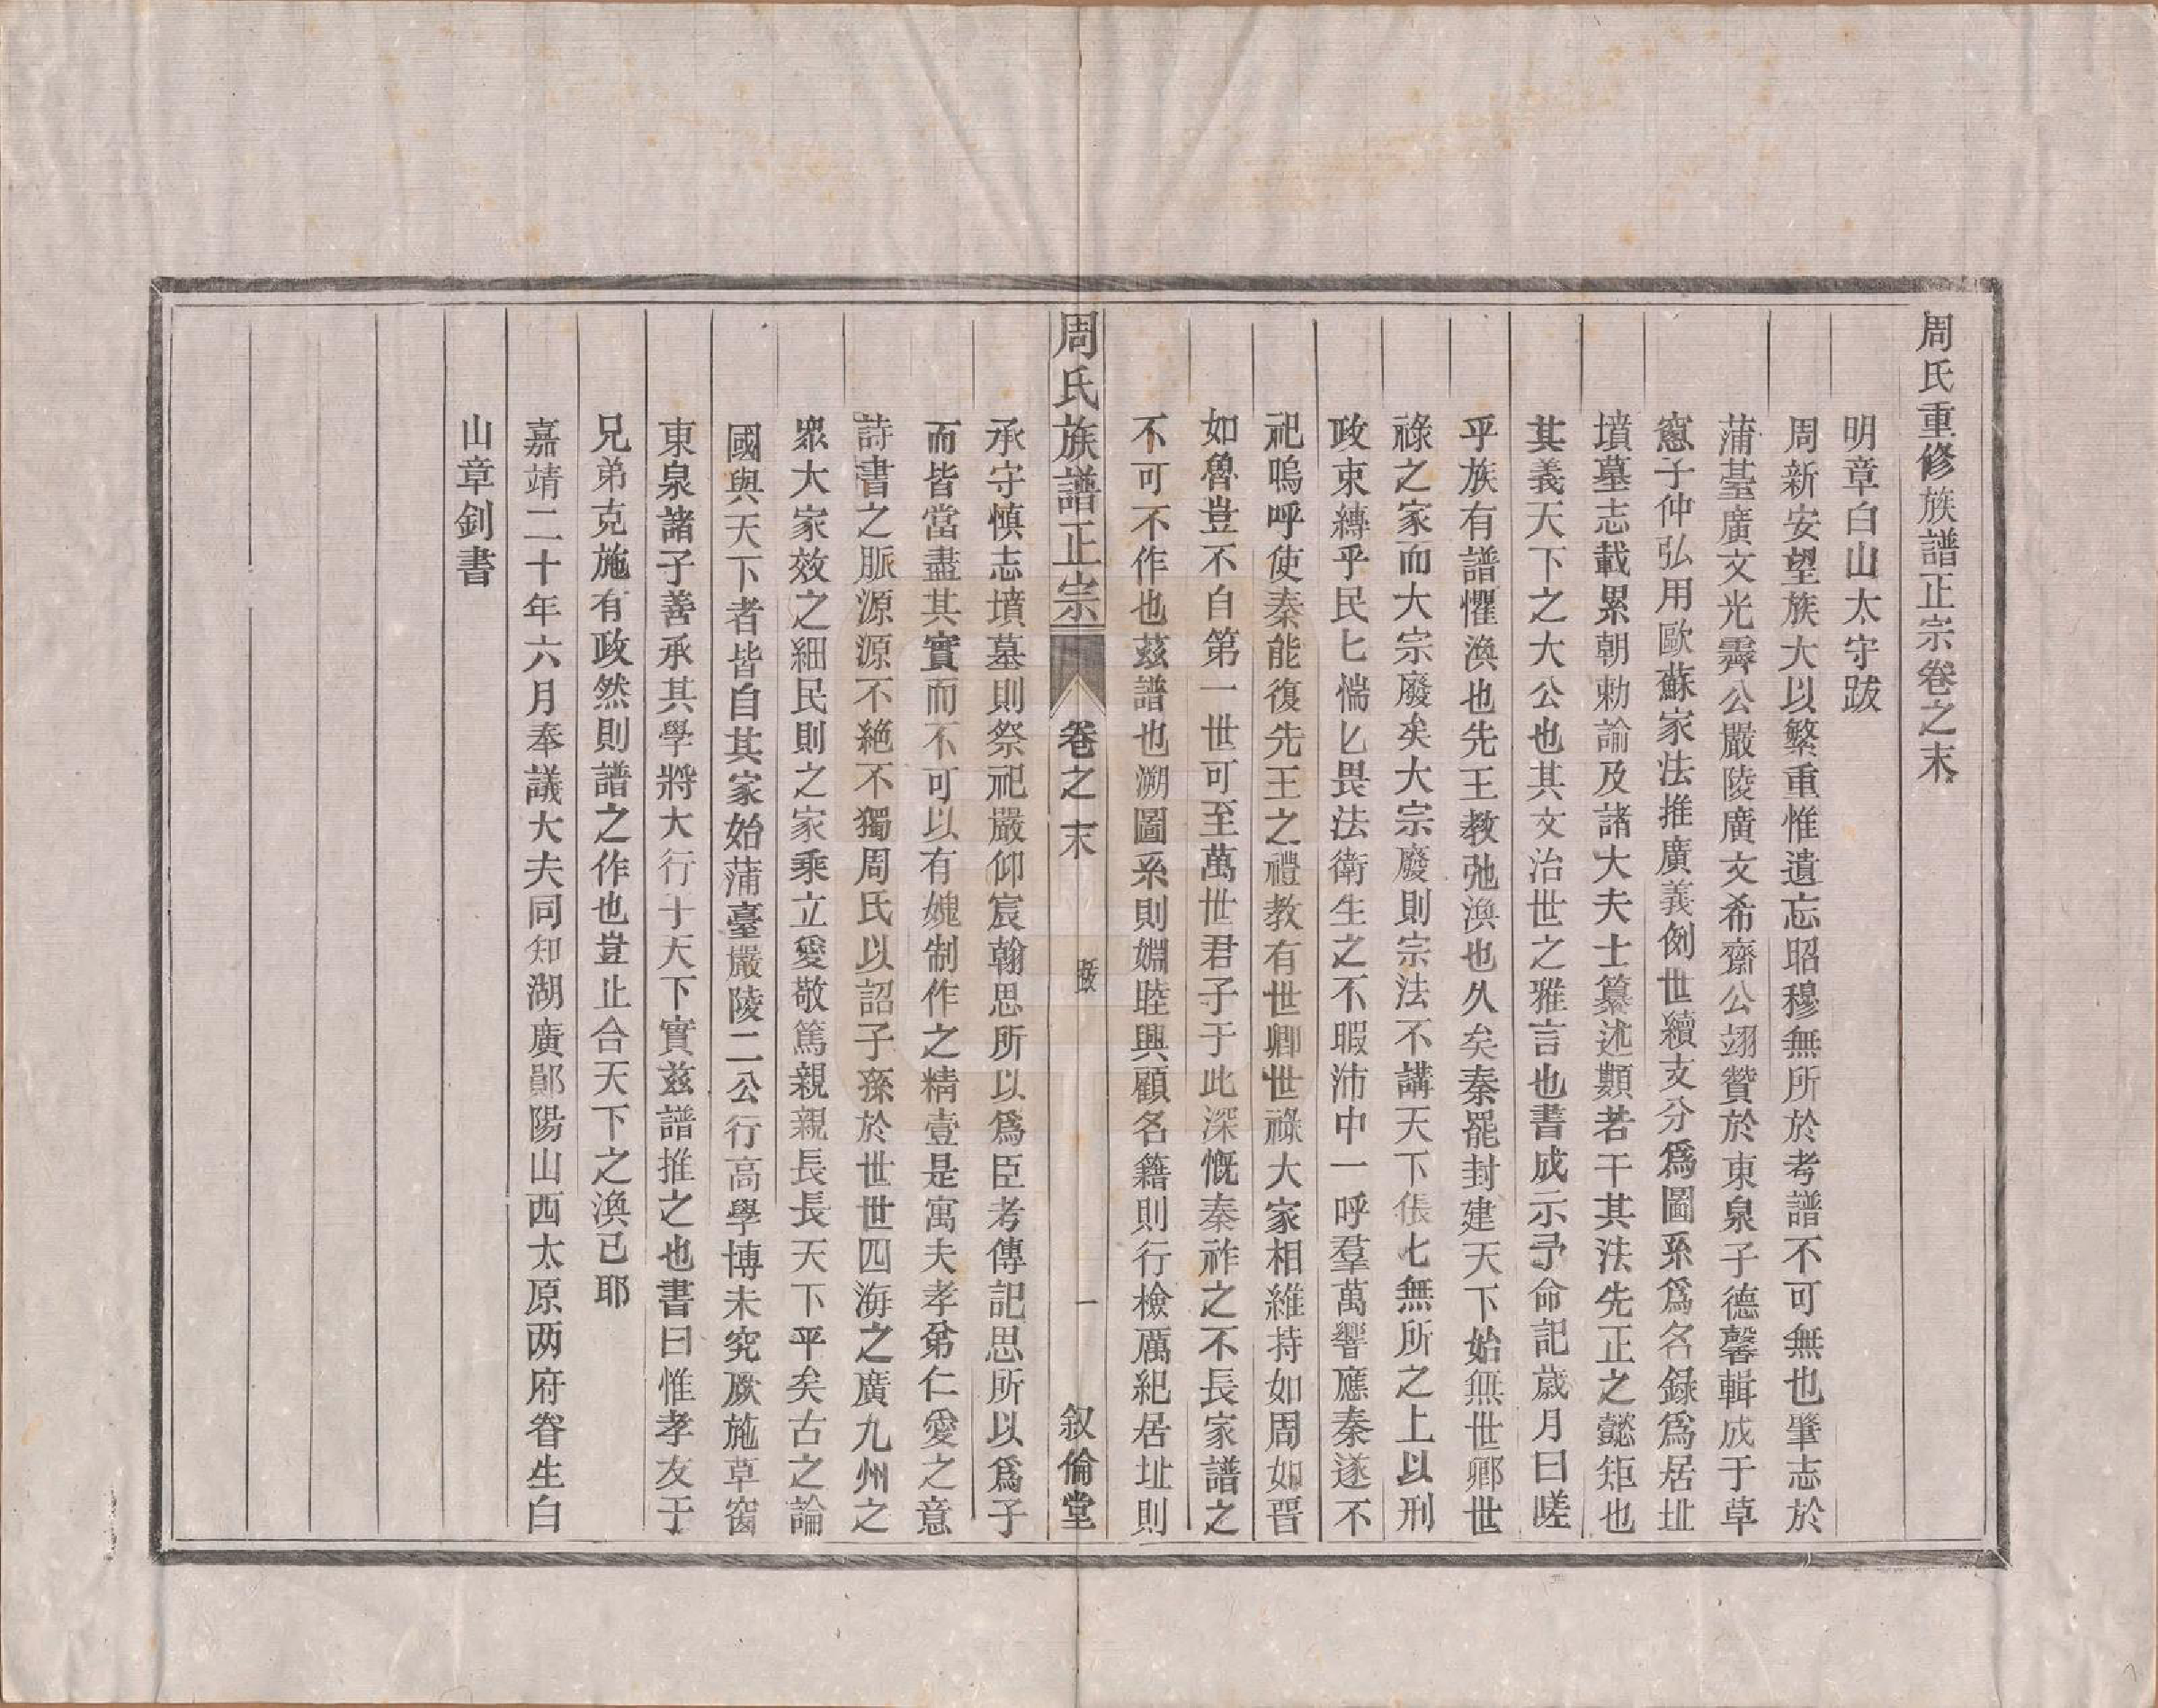 周氏重修族譜正宗卷之末
明章白山太守跋
周新安望族大以繁重惟遺忘昭穆無所於考譜不可無也肇志於
蒲臺廣文光霽公嚴陵廣文希齋公翊贊於東泉子德馨輯成于草
窻子仲弘用歐蘇家法推廣義例世續支分爲圖系爲名錄爲居址
墳墓志載累朝勅諭及諸大夫士纂述類若干其法先正之懿矩也
其義天下之大公也其文治世之雅言也書成示予命記歲月曰嗟
乎族有譜懼渙也先王教弛渙也久矣秦罷封建天下始無世卿世
祿之家而大宗廢矣大宗廢則宗法不講天下倀七無所之上以刑
政束縳乎民匕惴匕畏法衛生之不暇沛中一呼羣萬響應秦遂不
祀嗚呼使秦能復先王之禮教有世卿世祿大家相維持如周如晋
如魯豈不白第一世可至萬世君子于此深慨秦祚之不長家譜之
不可不作也茲譜也溯圖系則婣睦興顧名籍則行檢厲紀居址則
周氏族譜正宗 卷之末 跋 一 叙倫堂
承守慎志墳墓則祭祀嚴仰宸翰思所以爲臣考傳記思所以爲子
而皆當盡其實而不可以有媿制作之精壹是寓夫孝弟仁愛之意
詩書之脈源源不絶不獨周氏以詔子孫於世世四海之廣九州之
衆大家效之細民則之家乘立愛敬篤親親長長天下平矣古之論
國與天下者皆自其家始蒲臺嚴陵二公行高學博未究厥施草窗
東泉諸子善承其學將大行于天下實兹譜推之也書曰惟孝友于
兄弟克施有政然則譜之作也豈止合天下之渙已耶
嘉靖二十年六月奉議大夫同知湖廣鄖陽山西太原两府眷生白
山章釗書